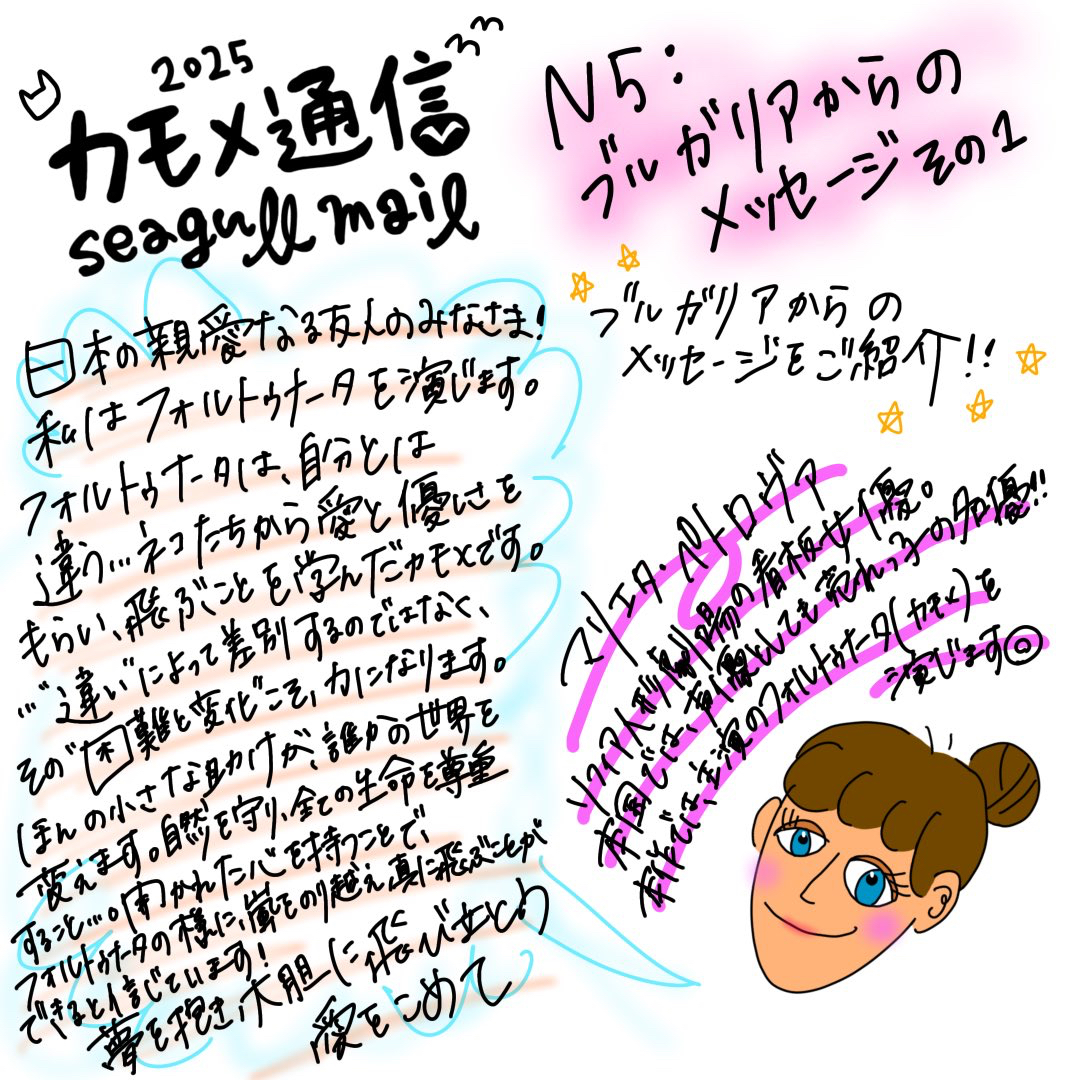 2025
カモメ通信
seagull mail
N5:
ブルガリアからの
メッセージその1
ブルガリアからの
メッセージをご紹介!!
日本の親愛なる友人のみなさま!
私はフォルトゥナータを演じます。
フォルトゥナータは、自分とは
違う…ネコたちから愛と優しさを
もらい、飛ぶことを学んだカモメです。
…"違い"によって差別するのではなく、
その"困難と変化"こそ、力になります。
ほんの小さな助けが、誰かの世界を
変えます。自然を守り、全ての生命を尊重
すること…。開かれた心を持つことで、
フォルトゥナータの様に、嵐をのり越え、真に飛ぶことが
できると信じています!
夢を抱き、大胆に飛び立とう
愛をこめて
マリエタ・ペトロヴァ
ソフィア人形劇場の看板女優。
本国では、声優としても売れっ子の名優!!
本作では、主演のフォルトゥナータ(カモメ)を
演じます